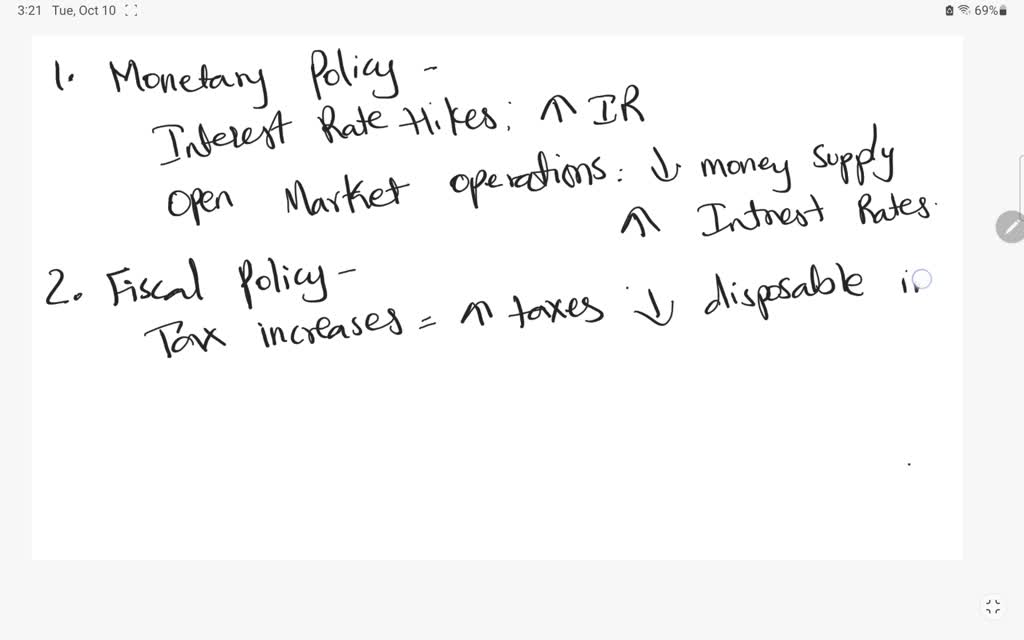 3:21 Tue, Oct 10 69%
1. Monetary Policy -
Interest Rate Hikes; ↑ IR
Open Market operations: ↓ money supply
↑ Intrest Rates.
2. Fiscal Policy -
Tax increases = ↑ taxes ↓ disposable i